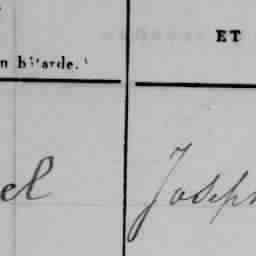 ET
n bâtarde.
el
Joseph